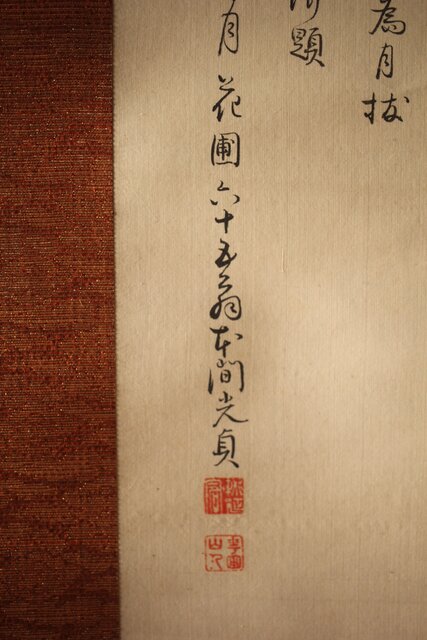 為月拔
題
月花圃六十五翁本間光貞